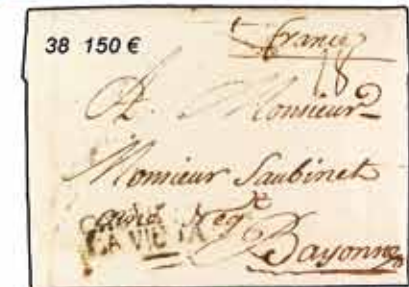 38 150 €
France
18
A Monsieur
Monsieur Saubinet
Bayonne